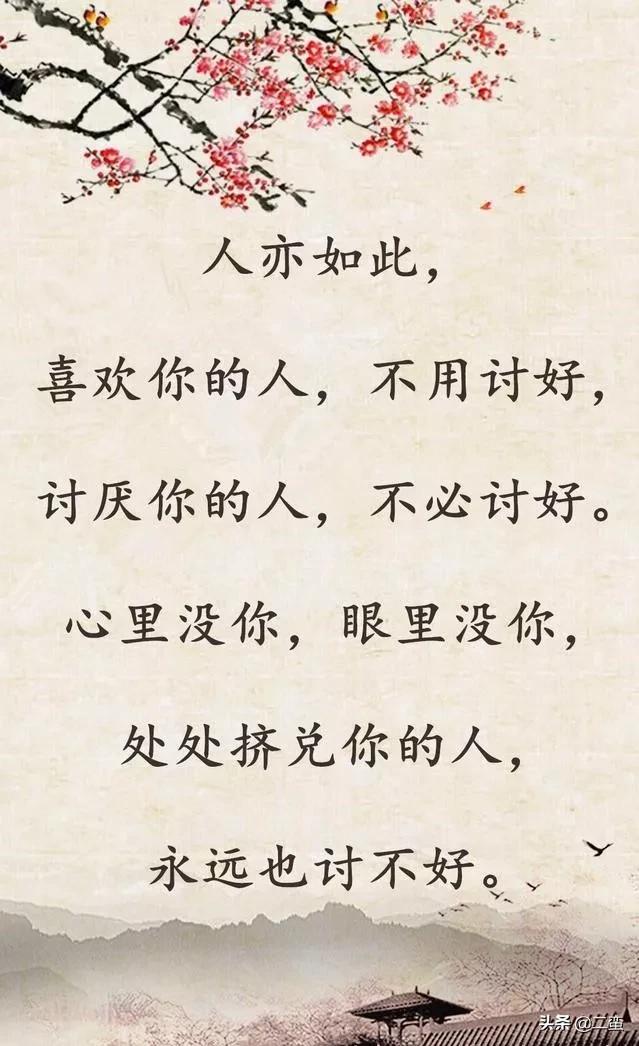 人亦如此，
喜欢你的人，不用讨好，
讨厌你的人，不必讨好。
心里没你，眼里没你，
处处挤兑你的人，
永远也讨不好。
头条 @二蛮